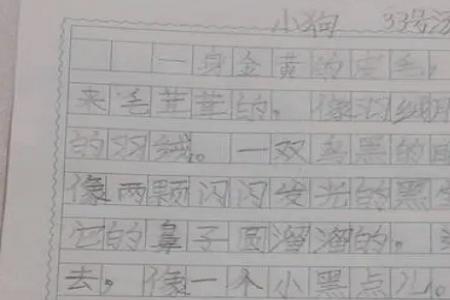 小狗 33号
一身金黄的皮毛,
来毛茸茸的。像羽绒服
的羽绒。一双乌黑的眼
像两颗闪闪发光的黑宝
它的鼻子圆溜溜的。
去,像一个小黑点儿。